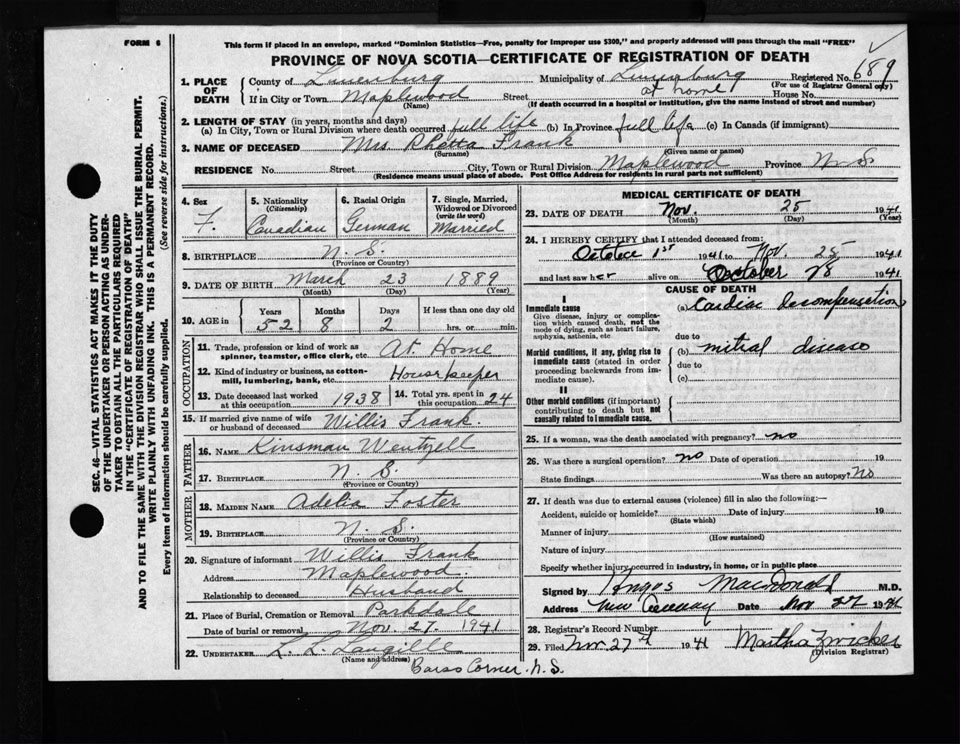 FORM 6
This form if placed in an envelope, marked "Dominion Statistics—Free, penalty for improper use $300," and properly addressed will pass through the mail "FREE"
PROVINCE OF NOVA SCOTIA—CERTIFICATE OF REGISTRATION OF DEATH
1. PLACE OF DEATH { County of Lunenburg Municipality of Lunenburg Registered No. 689
(For use of Registrar General only)
If in City or Town Maplewood Street at home House No.
(Name) (If death occurred in a hospital or institution, give the name instead of street and number)
2. LENGTH OF STAY (in years, months and days)
(a) In City, Town or Rural Division where death occurred full life (b) In Province full life (c) In Canada (if immigrant)
3. NAME OF DECEASED Mrs. Rhetta Frank
(Surname) (Given name or names)
RESIDENCE No. Street City, Town or Rural Division Maplewood Province N.S.
(Residence means usual place of abode. Post Office Address for residents in rural parts not sufficient)
4. Sex F.
5. Nationality (Citizenship) Canadian
6. Racial Origin German
7. Single, Married, Widowed or Divorced (write the word) Married
8. BIRTHPLACE N.S.
(Province or Country)
9. DATE OF BIRTH March 23 1889
(Month) (Day) (Year)
10. AGE in Years 52 Months 8 Days 2 If less than one day old hrs. or min.
OCCUPATION
11. Trade, profession or kind of work as spinner, teamster, office clerk, etc. At Home
12. Kind of industry or business, as cotton-mill, lumbering, bank, etc. Housekeeper
13. Date deceased last worked at this occupation 1938
14. Total yrs. spent in this occupation 24
15. If married give name of wife or husband of deceased Willis Frank.
FATHER
16. NAME Kinsman Wentzell
17. BIRTHPLACE N.S.
(Province or Country)
MOTHER
18. MAIDEN NAME Adelia Foster
19. BIRTHPLACE N.S.
(Province or Country)
20. Signature of informant Willis Frank
Address Maplewood.
Relationship to deceased Husband
21. Place of Burial, Cremation or Removal Parkdale
Date of burial or removal Nov. 27. 1941
22. UNDERTAKER L. L. Langille
(Name and address)
Barss Corner, N.S.
MEDICAL CERTIFICATE OF DEATH
23. DATE OF DEATH Nov. 25 1941
(Month) (Day) (Year)
24. I HEREBY CERTIFY that I attended deceased from:
October 1st 1941 to Nov. 25 1941
and last saw her alive on October 28 1941
CAUSE OF DEATH
I
Immediate cause (a) Cardiac Decompensation
Give disease, injury or complication which caused death, not the mode of dying, such as heart failure, asphyxia, asthenia, etc.
due to
Morbid conditions, if any, giving rise to immediate cause (stated in order proceeding backwards from immediate cause). (b) mitral disease
due to
(c)
II
Other morbid conditions (if important) contributing to death but not causally related to immediate cause.
25. If a woman, was the death associated with pregnancy? no
26. Was there a surgical operation? no Date of operation 19
State findings Was there an autopsy? no
27. If death was due to external causes (violence) fill in also the following:—
Accident, suicide or homicide? Date of injury 19
(State which)
Manner of injury
(How sustained)
Nature of injury
Specify whether injury occurred in industry, in home, or in public place
Signed by Angus MacDonald M.D.
Address New Germany Date Nov 27 1941
28. Registrar's Record Number
29. Filed Nov. 27th 1941 Martha Zwicker
(Division Registrar)
SEC. 46—VITAL STATISTICS ACT MAKES IT THE DUTY
OF THE UNDERTAKER OR PERSON ACTING AS UNDER-
TAKER TO OBTAIN ALL THE PARTICULARS REQUIRED
IN THE "CERTIFICATE OF REGISTRATION OF DEATH"
AND TO FILE THE SAME WITH THE DIVISION REGISTRAR WHO SHALL ISSUE THE BURIAL PERMIT.
WRITE PLAINLY WITH UNFADING INK. THIS IS A PERMANENT RECORD.
Every item of information should be carefully supplied. (See reverse side for instructions.)